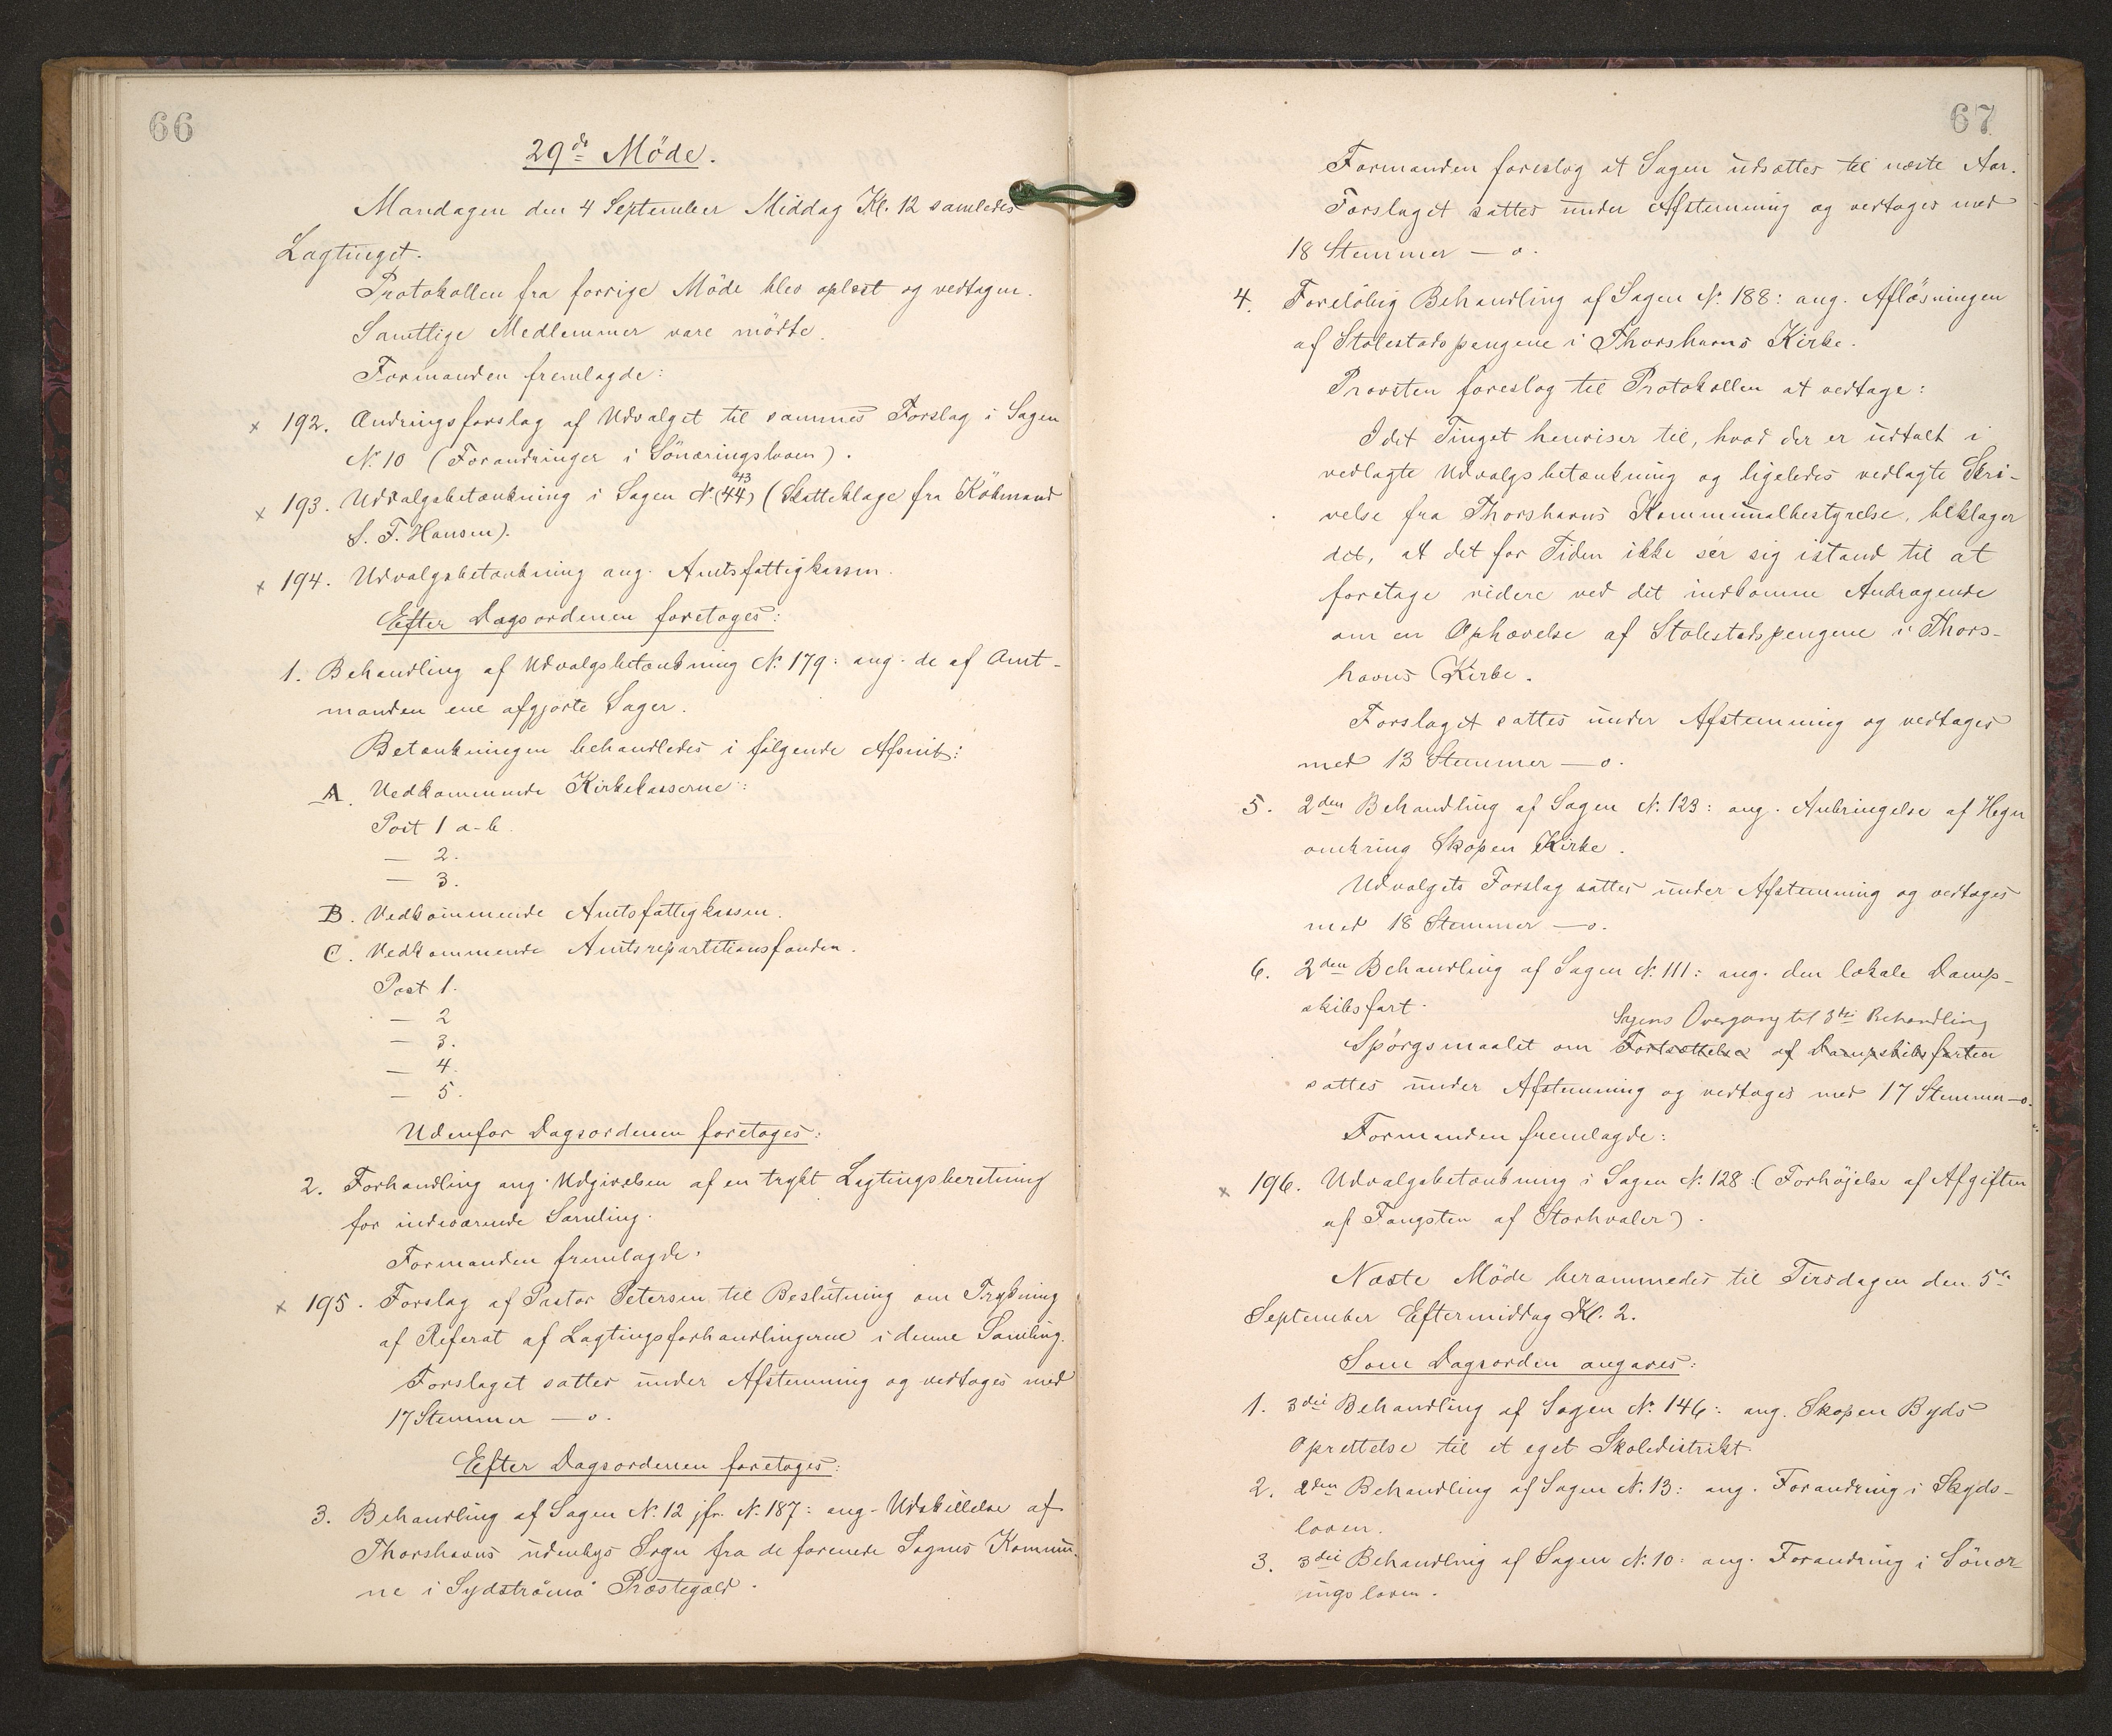 66
29de Möde.
Mandagen den 4 September Middag Kl. 12 samledes
Lagtinget.
Protokollen fra forrige Möde blev oplæst og vedtagen.
Samtlige Medlemmer vare mödte.
Formanden fremlagde:
× 192. Ændringsforslag af Udvalget til sammes Forslag i Sagen
№ 10 (Forandringer i Sönæringsloven).
43
× 193. Udvalgsbetænkning i Sagen № (44) (Skatteklage fra Köbmand
S. F. Hansen).
× 194. Udvalgsbetænkning ang. Amtsfattigkassen.
Efter Dagsordenen foretoges:
1. Behandling af Udvalgsbetænkning № 179: ang. de af Amt-
manden ene afgjorte Sager.
Betænkningen behandledes i fölgende Afsnit:
A. Vedkommende Kirkekasserne:
Post 1 a-b.
— 2.
— 3.
B. Vedkommende Amtsfattigkassen.
C. Vedkommende Amtsrepartitionsfonden.
Post 1.
— 2
— 3.
— 4.
— 5.
Udenfor Dagsordenen foretoges:
2. Forhandling ang. Udgivelsen af en trykt Lagtingsberetning
for indeværende Samling.
Formanden fremlagde:
× 195. Forslag af Pastor Petersen til Beslutning om Trykning
af Referat af Lagtingsforhandlingerne i denne Samling.
Forslaget sattes under Afstemning og vedtoges med
17 Stemmer — o.
Efter Dagsordenen foretoges:
3. Behandling af Sagen № 12 jfr. № 187: ang. Udskillelse af
Thorshavns udenbys Sogn fra de forenede Sognes Kommu-
ne i Sydströmö Præstegæld.
67
Formanden foreslog at Sagen udsattes til næste Aar.
Forslaget sattes under Afstemning og vedtoges med
18 Stemmer — o.
4. Forelöbig Behandling af Sagen № 188: ang. Aflösningen
af Stolestadspengene i Thorshavns Kirke.
Provsten foreslog til Protokollen at vedtage:
Idet Tinget henviser til, hvad der er udtalt i
vedlagte Udvalgsbetænkning og ligeledes vedlagte Skri-
velse fra Thorshavns Kommunalbestyrelse, beklager
det, at det for Tiden ikke sér sig istand til at
foretage videre ved det indkomne Andragende
om en Ophævelse af Stolestadspengene i Thors-
havns Kirke.
Forslaget sattes under Afstemning og vedtoges
med 13 Stemmer — o.
5. 2den Behandling af Sagen № 123: ang. Anbringelse af Hegn
omkring Skopen Kirke.
Udvalgets Forslag sattes under Afstemning og vedtoges
med 18 Stemmer — o.
6. 2den Behandling af Sagen № 111: ang. den lokale Damp-
skibsfart.
Sagens Overgang til 3die Behandling
Spörgsmaalet om Fortsættelse af Dampskibsfarten
sattes under Afstemning og vedtoges med 17 Stemmer — o.
Formanden fremlagde:
× 196. Udvalgsbetænkning i Sagen № 128: (Forhöjelse af Afgiften
af Fangsten af Storhvaler).
Næste Möde berammedes til Tirsdagen den 5te
September Eftermiddag Kl. 2.
Som Dagsorden angaves:
1. 3die Behandling af Sagen № 146: ang. Skopen Byds
Oprettelse til et eget Skoledistrikt.
2. 2den Behandling af Sagen № 13: ang. Forandring i Skyds-
loven.
3. 3die Behandling af Sagen № 10: ang. Forandring i Sönær-
ingsloven.